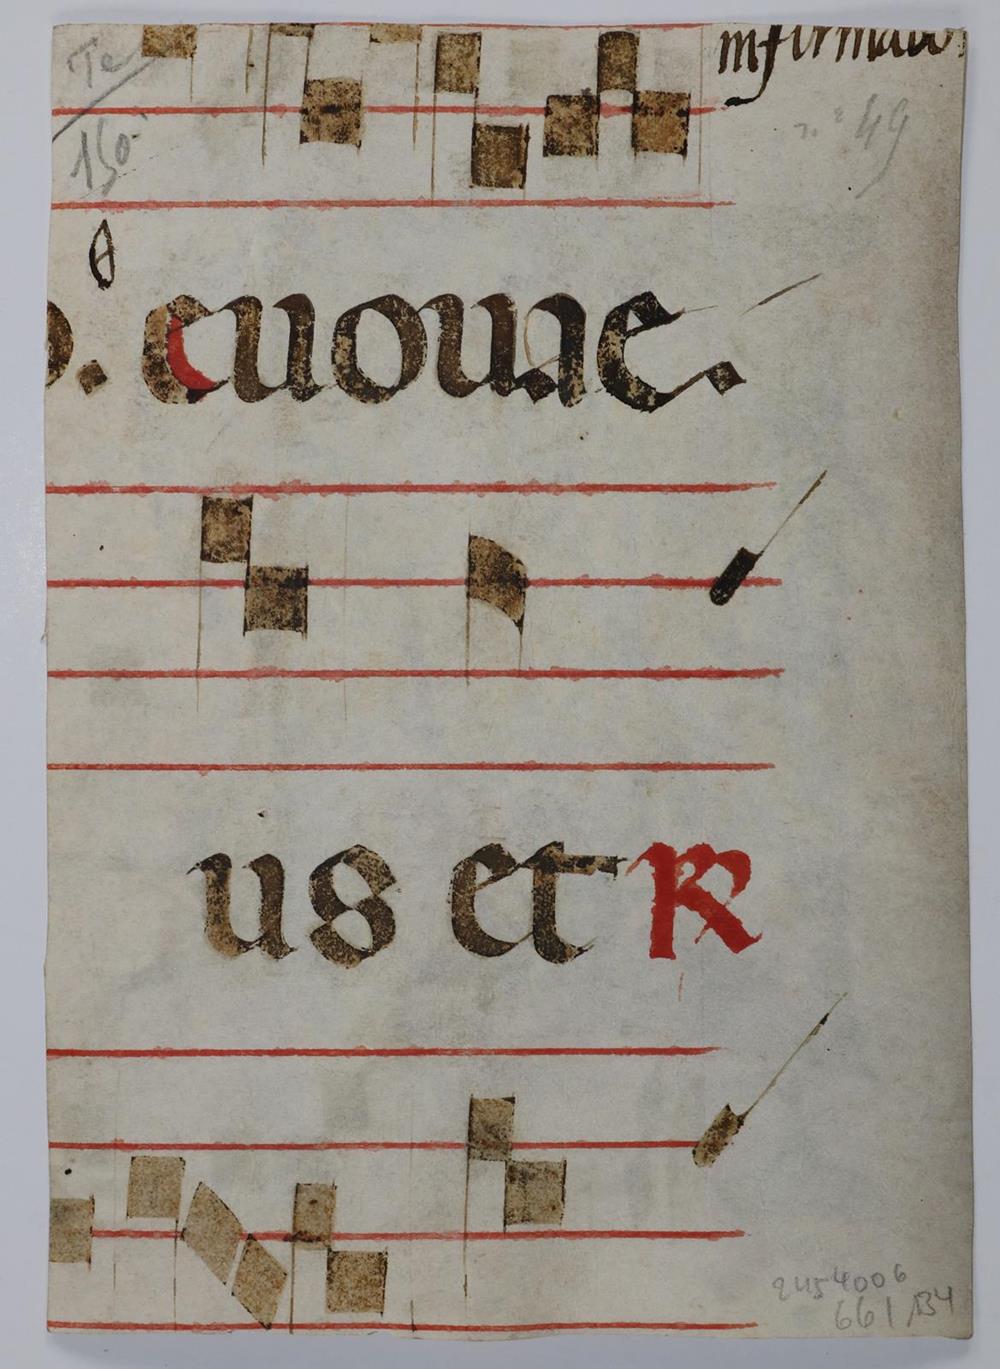 infirmato
Te
150
49
o. euouae.
us et R
2454006
661 /B4